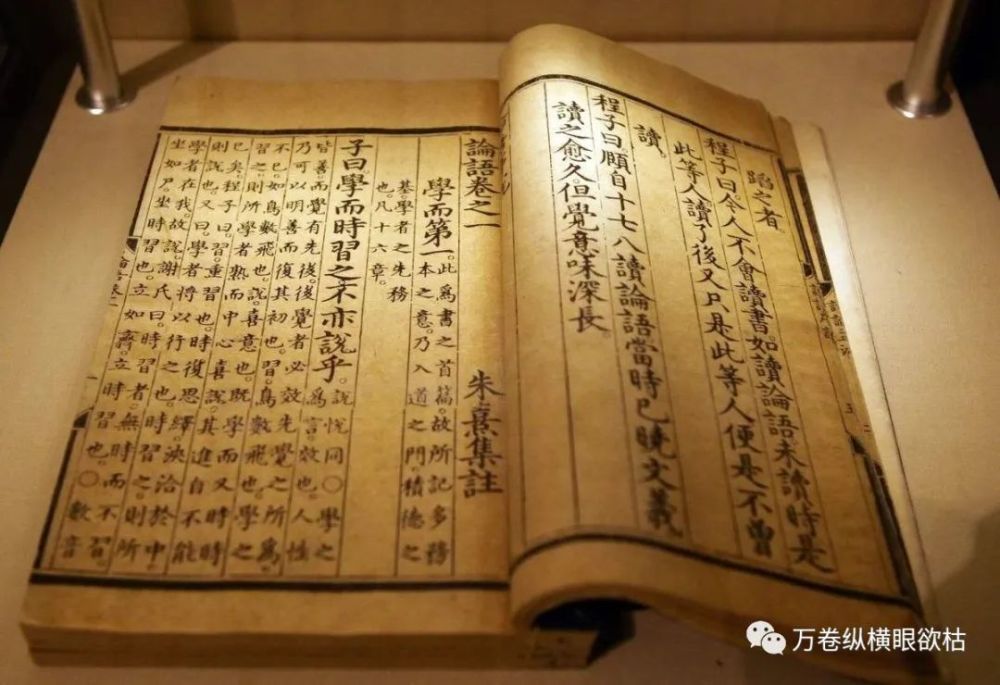 蹈之者
程子曰今人不會讀書如讀論語未讀時是
此等人讀了後又只是此等人便是不曾
讀。
程子曰頤自十七八讀論語當時已曉文義
讀之愈久但覺意味深長
論語卷之一 朱熹集註
學而第一。此爲書之首篇。故所記多務
本之意。乃入道之門。積德之
基。學者之先務
也。凡十六章。
子曰。學而時習之。不亦說乎。說悅同〇學之
爲言效也。人性
皆善而覺有先後。後覺者必效先覺之所爲
乃可以明善而復其初也。習鳥數飛也。學之
不已。如鳥數飛也。說喜意也。既學而又時時
習之。則所學者熟而中心喜說。其進自不能
已矣。程子曰。習重習也。時復思繹浹洽於中
則說也。又曰。學者將以行之也。時習之。則所
學者在我。故說。謝氏曰。時習者。無時而不習
坐如尸。坐時習也。立如齊。立時習也。〇數音
万卷纵横眼欲枯